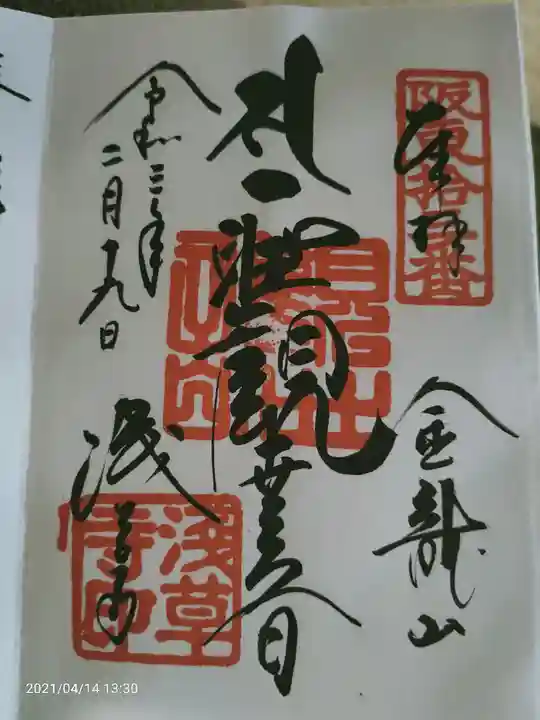 阪東拾三番
奉拝
金龍山
聖観世音
令和三年
二月十九日
浅草寺
浅草寺印
2021/04/14 13:30